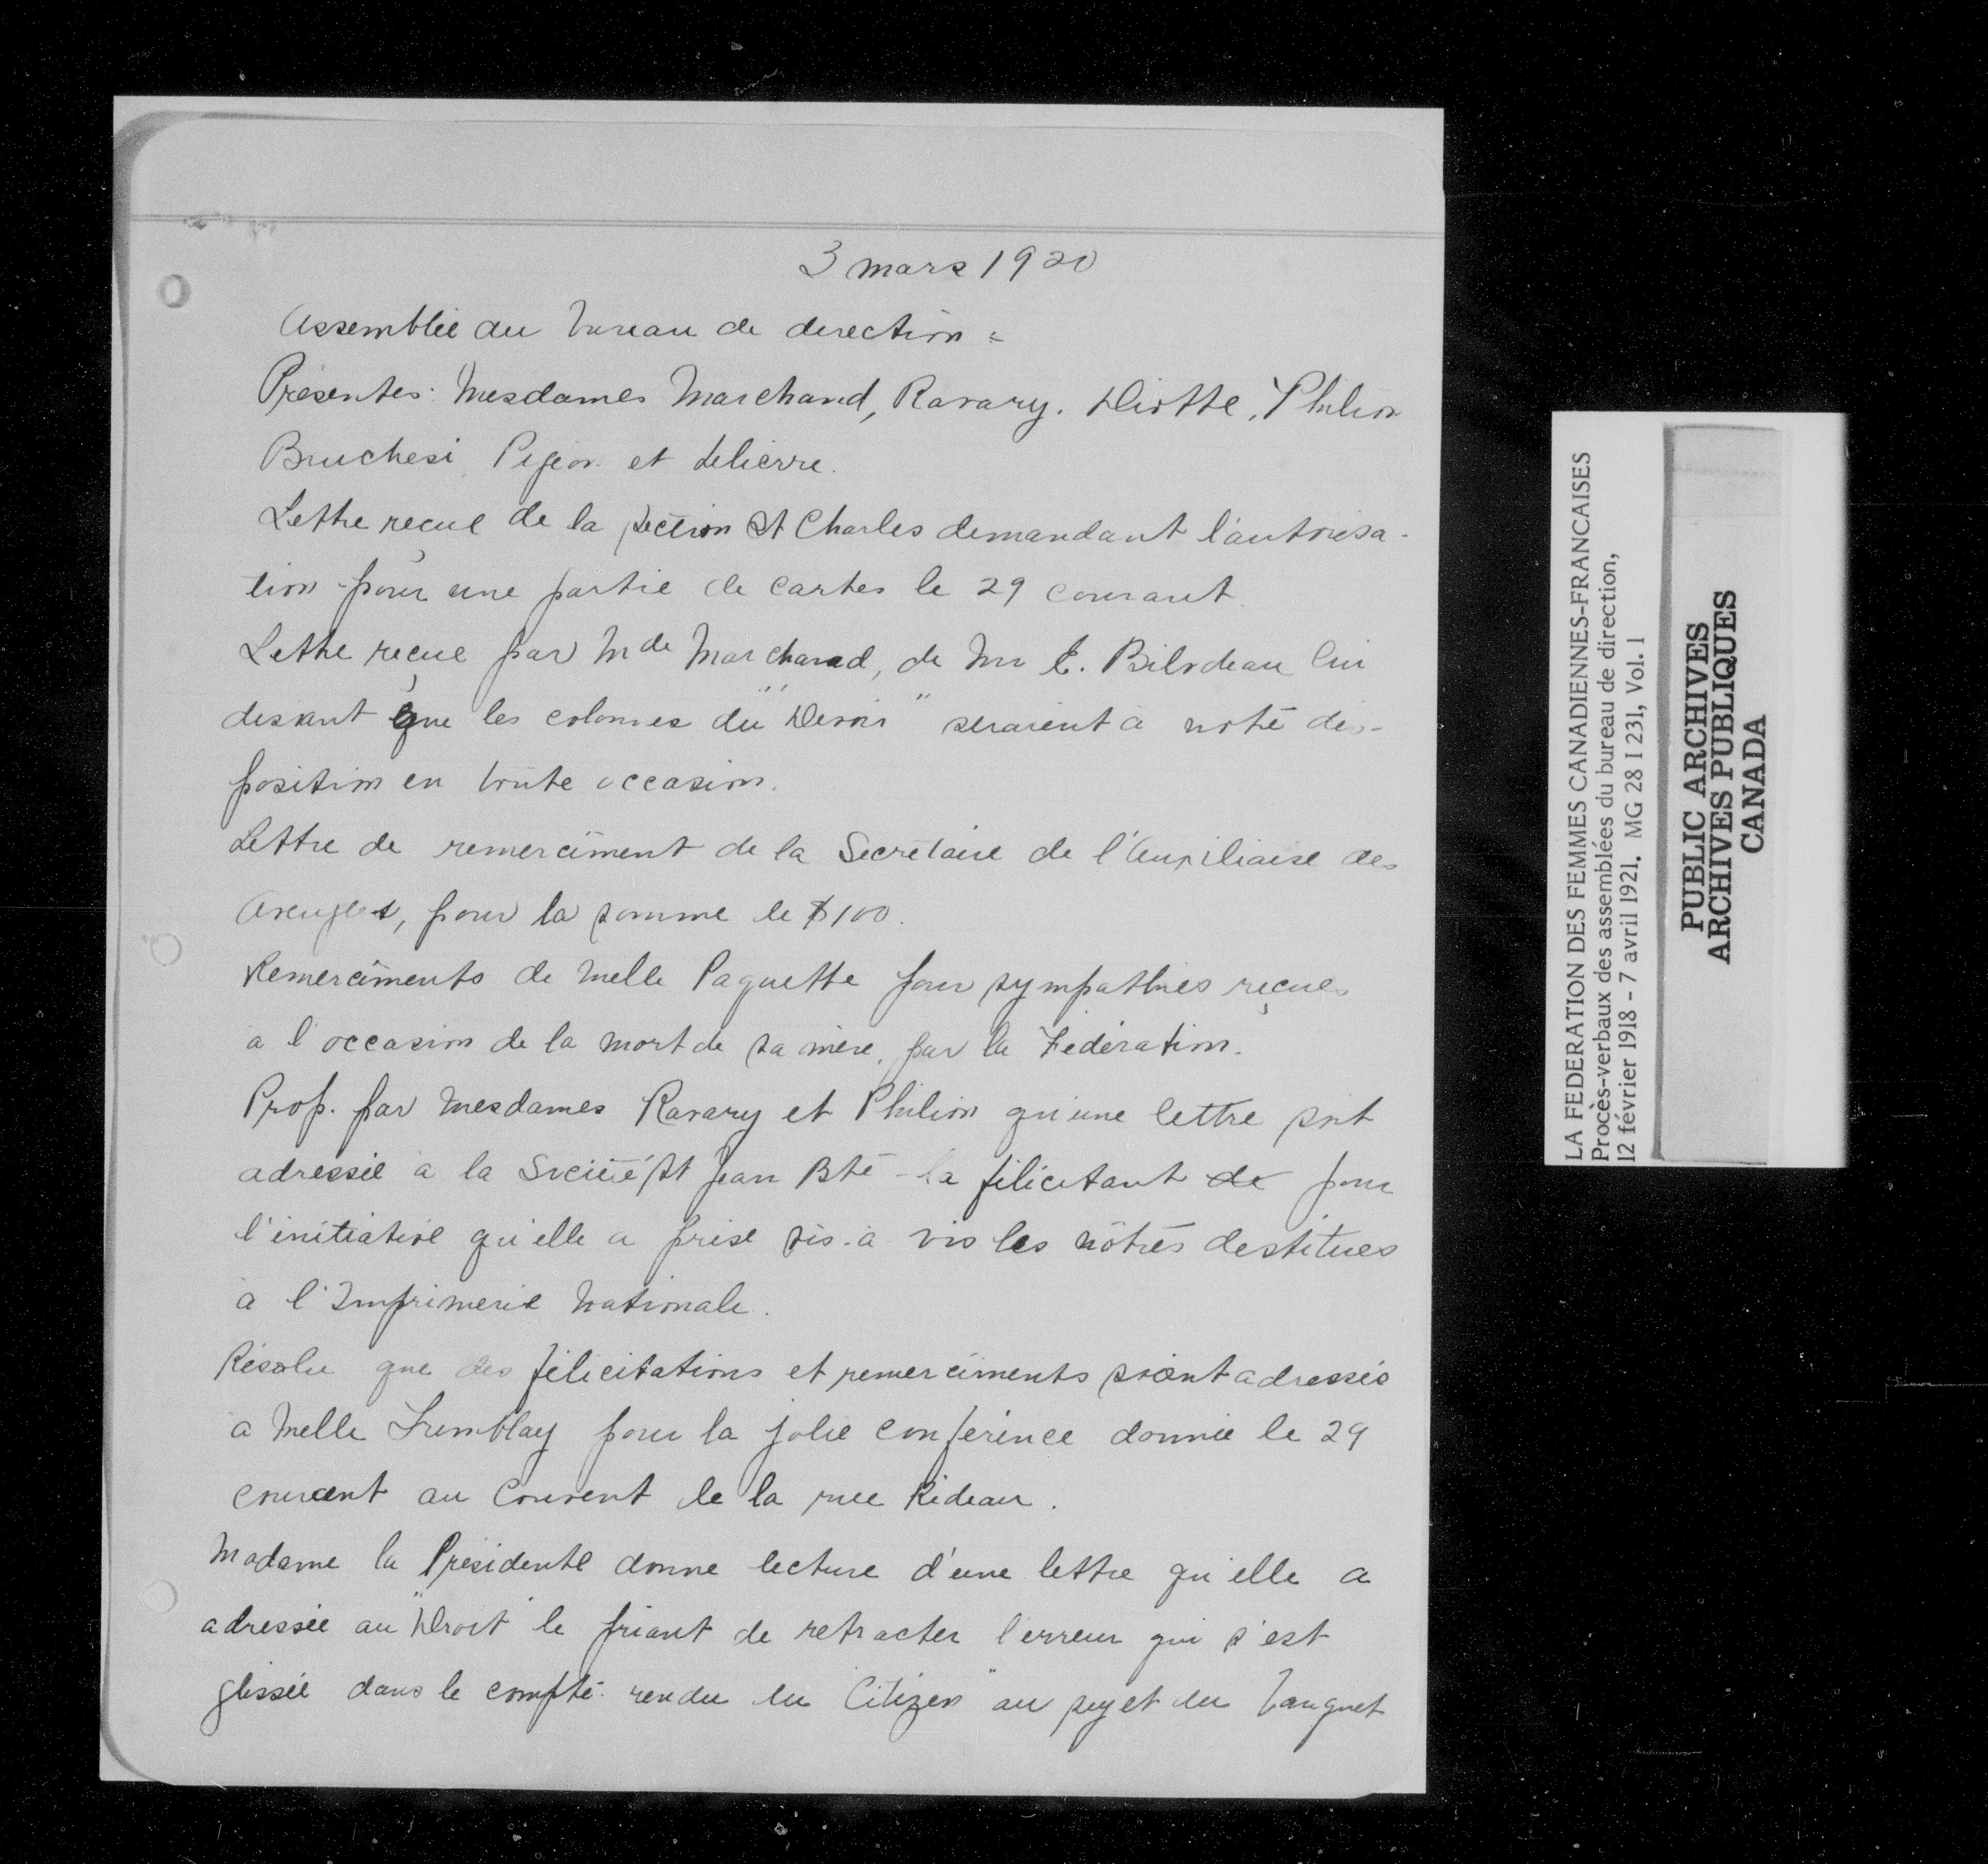 3 mars 1920
Assemblée du bureau de direction =
Présentes: Mesdames Marchand, Ravary. Diotte, Philion
Bruchesi Pigeon et Lelièvre.
Lettre reçue de la section St Charles demandant l'autorisa-
tion pour une partie de cartes le 29 courant.
Lettre reçue par Mde Marchand, de Mr E. Bilodeau lui
disant que les colonnes du "Devoir" seraient à notre dis-
position en toute occasion.
Lettre de remerciment de la Secrétaire de l'Auxiliaire des
Aveugles, pour la somme de $100.
Remerciments de Melle Paquette pour sympathies reçues
a l'occasion de la mort de sa mère, par la Fédération.
Prop. par Mesdames Ravary et Philion qu'une lettre soit
adressée à la Société St Jean Bte - la félicitant de pour
l'initiative qu'elle a prise vis-à vis les nôtres destitués
à l'Imprimerie Nationale.
Résolu que des félicitations et remerciments soient adressés
à Melle Tremblay pour la jolie conférence donnée le 29
courant au Couvent de la rue Rideau.
Madame la Présidente donne lecture d'une lettre qu'elle a
adressée au "Droit" le priant de retracter l'erreur qui s'est
glissée dans le compte-rendu du Citizen" au sujet du banquet
LA FEDERATION DES FEMMES CANADIENNES-FRANCAISES
Procès-verbaux des assemblées du bureau de direction,
12 février 1918 - 7 avril 1921. MG 28 I 231, Vol. 1
PUBLIC ARCHIVES
ARCHIVES PUBLIQUES
CANADA